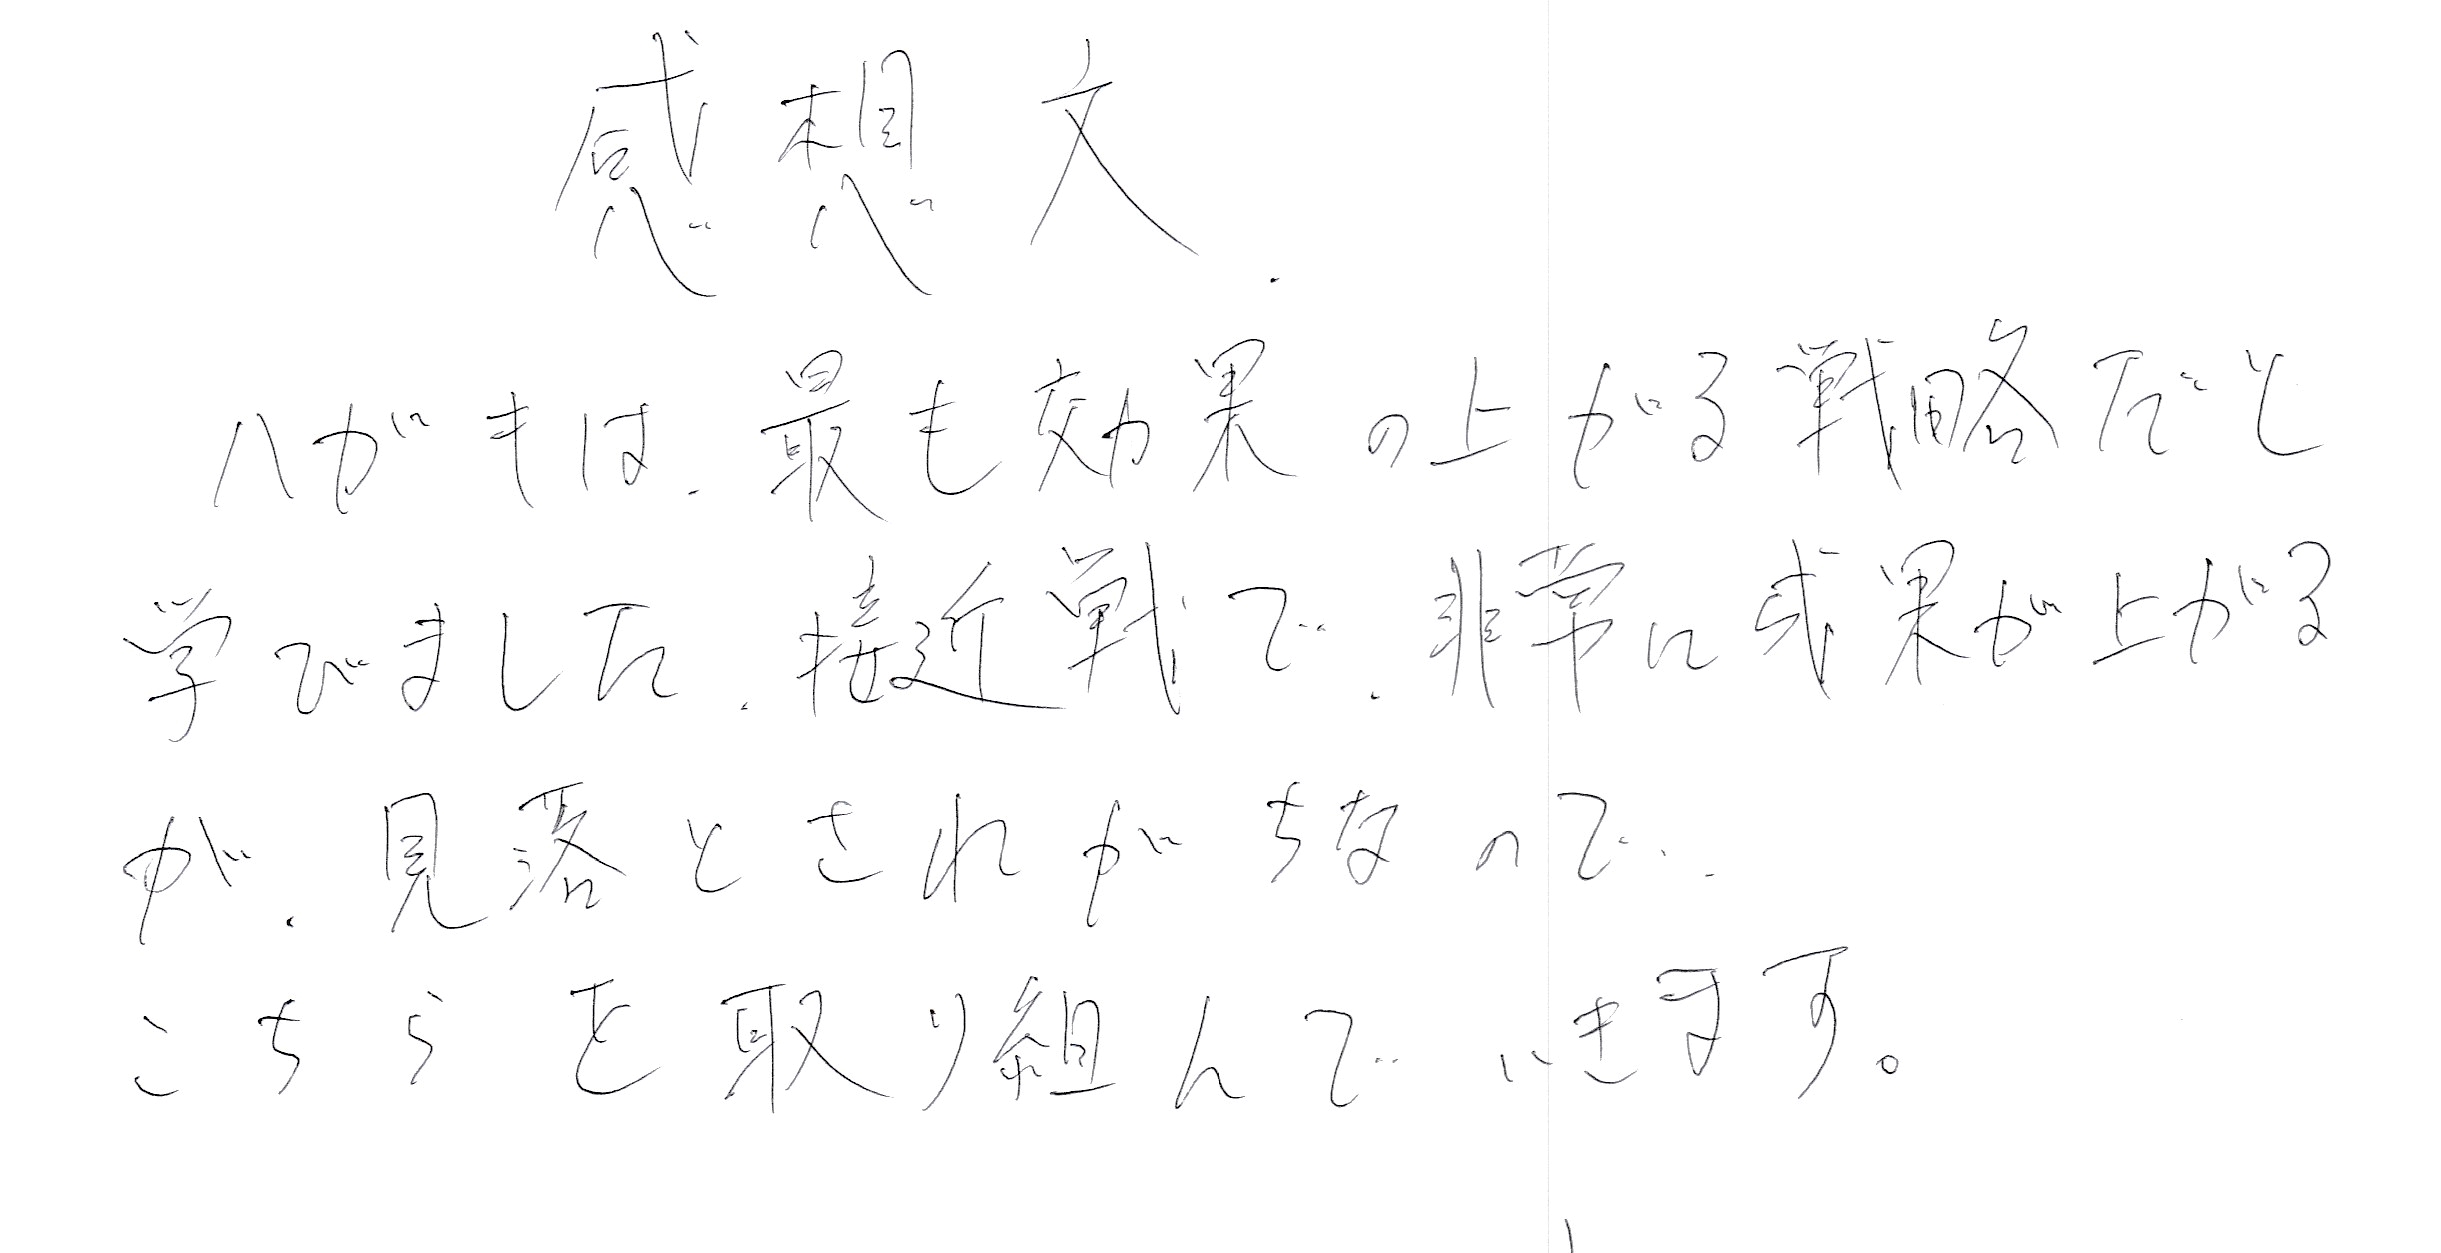 感想文
ハガキは、最も効果の上がる戦略だと
学びました、接近戦で、非常に成果が上がる
が、見落とされがちなので、
こちらを取り組んでいきます。